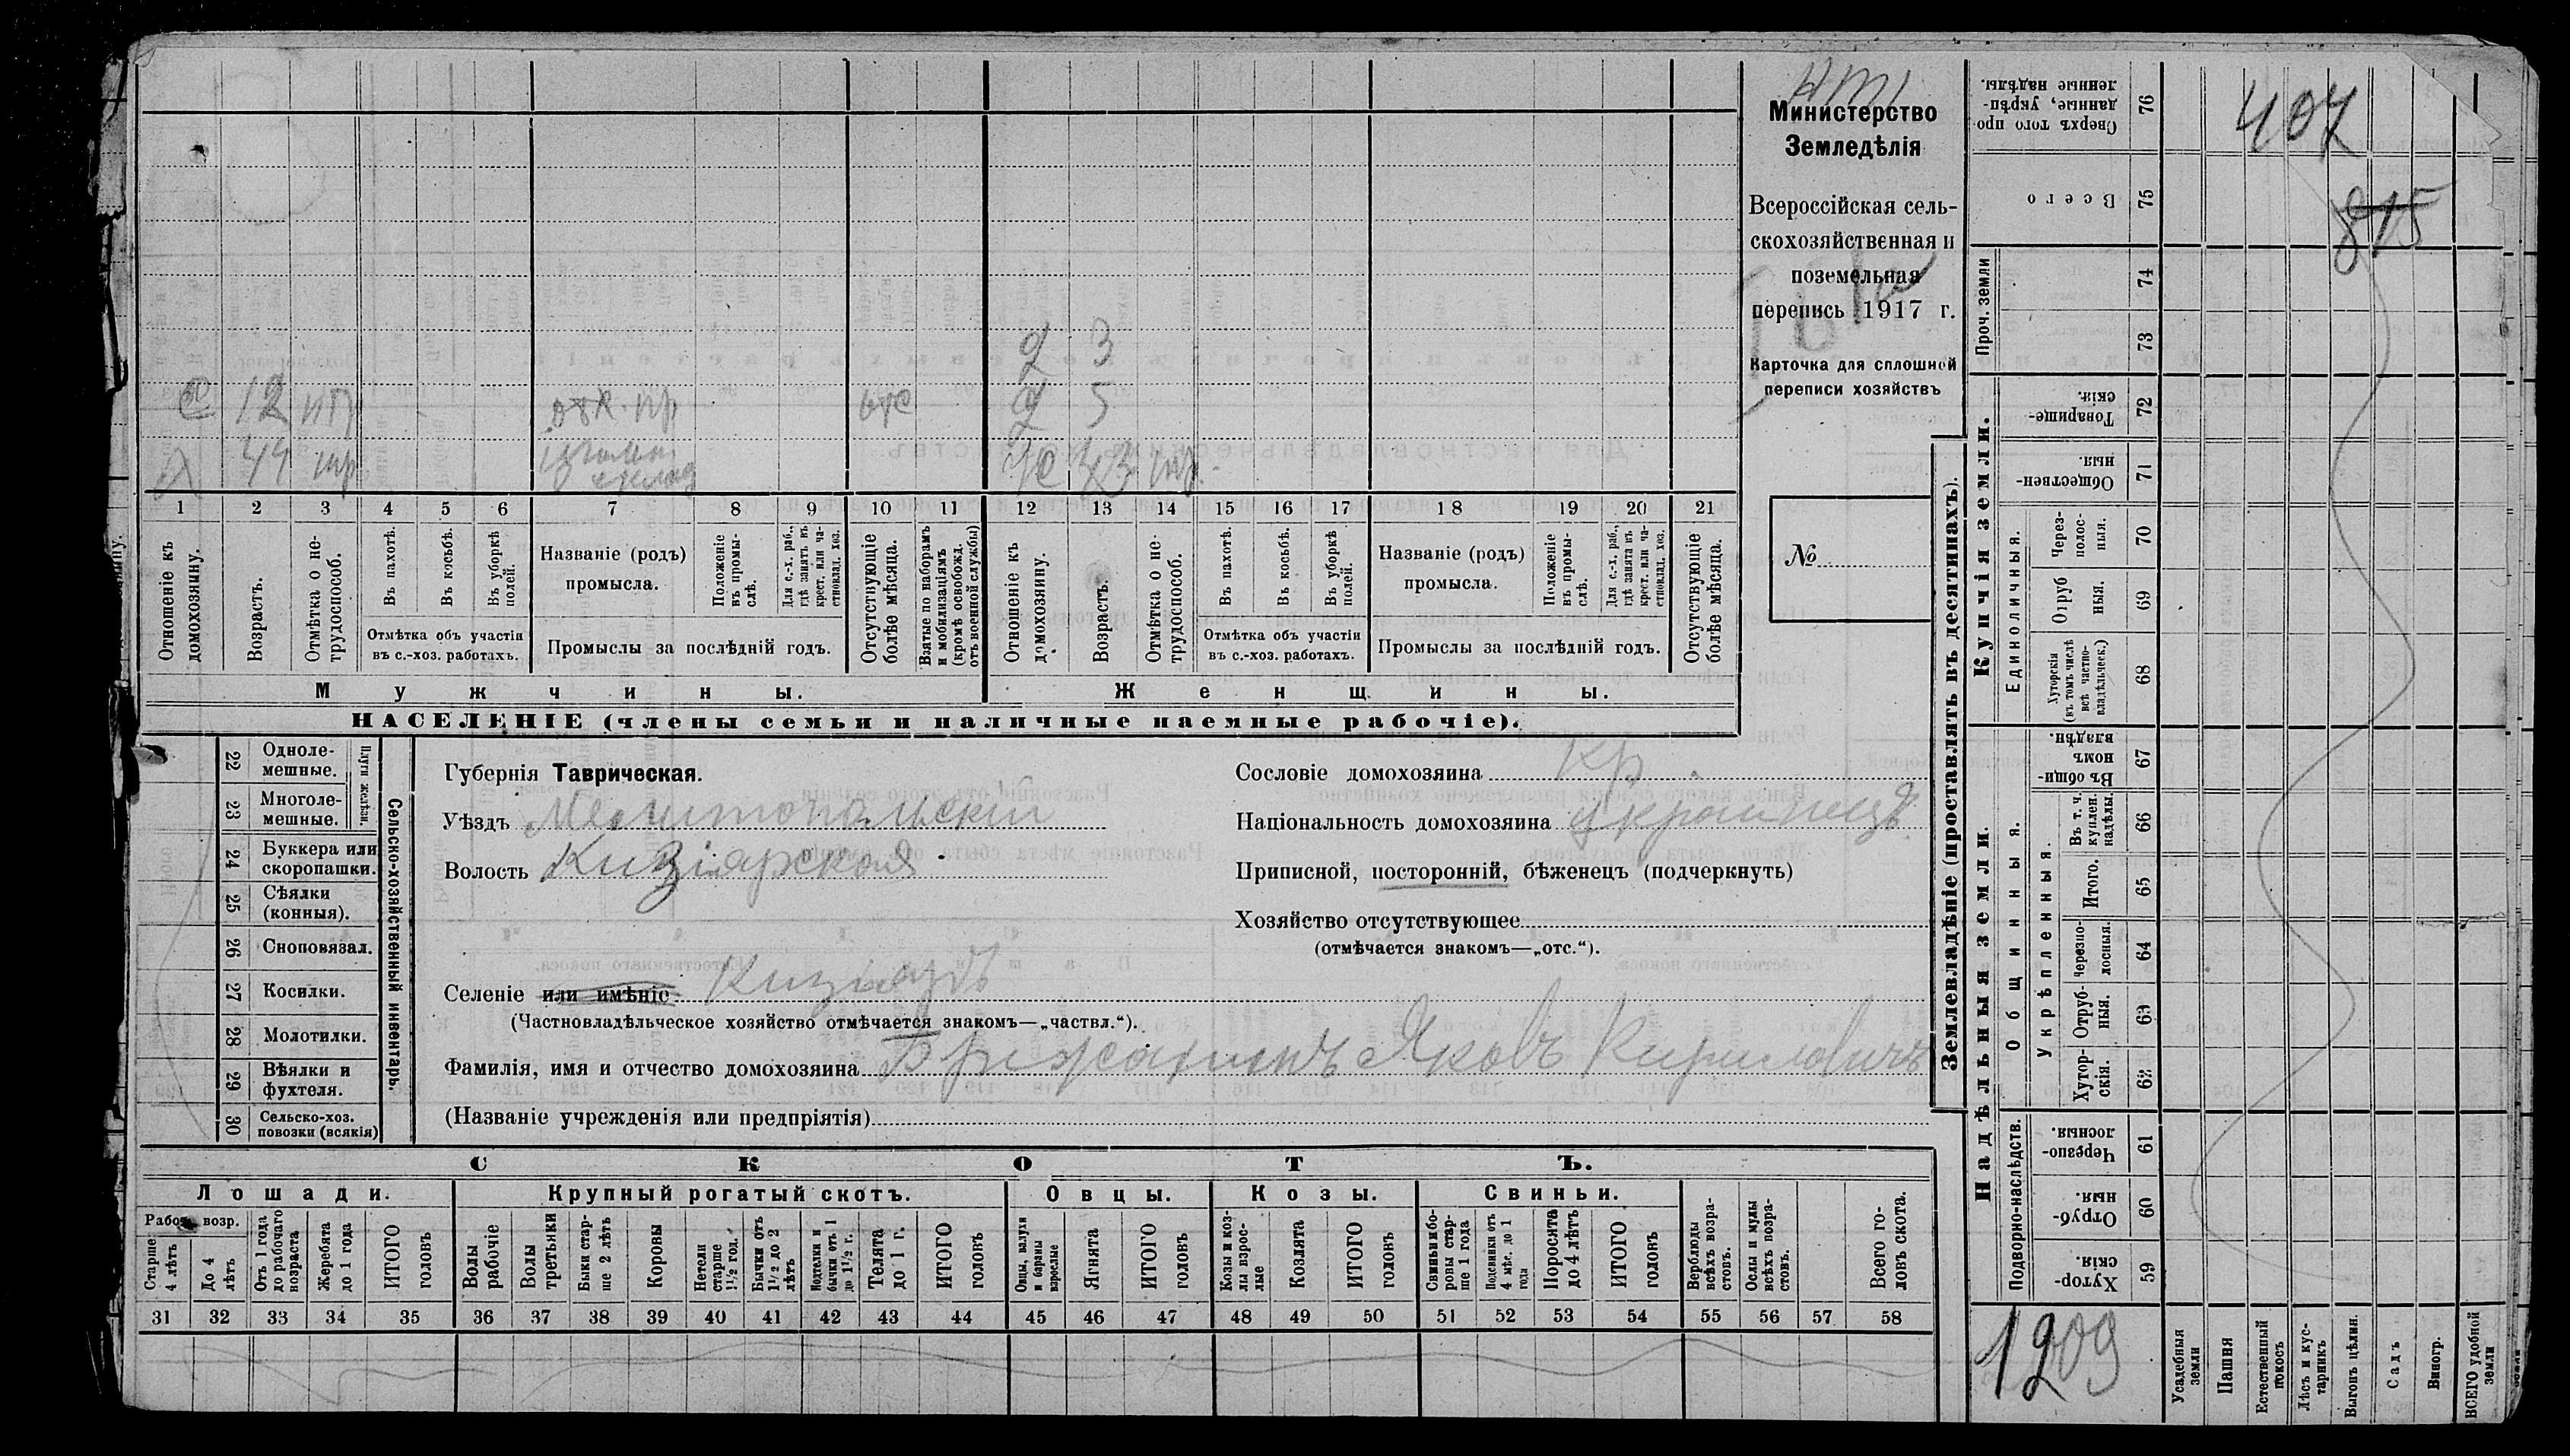 Министерство
Земледѣлія
Всероссійская сель-
скохозяйственная и
поземельная
перепись 1917 г.
Карточка для сплошной
переписи хозяйствъ
№
407
815
д 3
12 д 5
44 43
1 2 3 4 5 6 7 8 9 10 11 12 13 14 15 16 17 18 19 20 21
Отношеніе къ домохозяину.
Возрастъ.
Отмѣтка о не-трудоспособ.
Въ пахотѣ.
Въ косьбѣ.
Въ уборкѣ полей.
Отмѣтка объ участіи
въ с.-хоз. работахъ.
Названіе (родъ)
промысла.
Положеніе въ промы-слѣ.
Для с.-х. раб., гдѣ занятъ въ крест. или ча-стновлад. хоз.
Промыслы за послѣдній годъ.
Отсутствующіе болѣе мѣсяца.
Взятые по наборамъ и мобилизаціямъ (кромѣ освобожд. отъ военной службы)
Отношеніе къ домохозяину.
Возрастъ.
Отмѣтка о не-трудоспособ.
Въ пахотѣ.
Въ косьбѣ.
Въ уборкѣ полей.
Отмѣтка объ участіи
въ с.-хоз. работахъ.
Названіе (родъ)
промысла.
Положеніе въ промы-слѣ.
Для с.-х. раб., гдѣ занята въ крест. или ча-стновлад. хоз.
Промыслы за послѣдній годъ.
Отсутствующіе болѣе мѣсяца.
Мужчины.
Женщины.
НАСЕЛЕНІЕ (члены семьи и наличные наемные рабочіе).
22 Одноле-мешные.
23 Многоле-мешные.
Плуги желѣзн.
24 Буккера или скоропашки.
25 Сѣялки (конныя).
26 Сноповязал.
27 Косилки.
28 Молотилки.
29 Вѣялки и фухтеля.
30 Сельско-хоз. повозки (всякія)
Сельско-хозяйственный инвентарь.
Губернія Таврическая.
Уѣздъ Мелитопольскій
Волость Кизіярская
Селеніе или имѣніе Кизіяръ
(Частновладѣльческое хозяйство отмѣчается знакомъ—„частвл.“).
Фамилія, имя и отчество домохозяина Брижатинъ Яковъ Кириловичъ
(Названіе учрежденія или предпріятія)
Сословіе домохозяина кр.
Національность домохозяина украинецъ
Приписной, посторонній, бѣженецъ (подчеркнуть)
Хозяйство отсутствующее
(отмѣчается знакомъ—„отс.“).
СКОТЪ.
Лошади.
Крупный рогатый скотъ.
Овцы.
Козы.
Свиньи.
Рабоч. возр.
Старше 4 лѣтъ
До 4 лѣтъ
Отъ 1 года до рабочаго возраста
Жеребята до 1 года
ИТОГО головъ
Волы рабочіе
Волы третьяки
Быки стар-ше 2 лѣтъ
Коровы
Нетели старше 1½ год.
Бычки отъ 1½ до 2 лѣтъ
Подтелки и бычки отъ 1 до 1½ г.
Телята до 1 г.
ИТОГО головъ
Овцы, валухи и бараны взрослые
Ягнята
ИТОГО головъ
Козы и коз-лы взрос-лые
Козлята
ИТОГО головъ
Свиньи и бо-ровы стар-ше 1 года
Подсвинки отъ 4 мѣс. до 1 года
Поросята до 4 лѣтъ
ИТОГО головъ
Верблюды всѣхъ возра-стовъ.
Ослы и мулы всѣхъ возра-стовъ.
Всего го-ловъ скота.
31 32 33 34 35 36 37 38 39 40 41 42 43 44 45 46 47 48 49 50 51 52 53 54 55 56 57 58
Землевладѣніе (проставлять въ десятинахъ).
Купчія земли.
Надѣльныя земли.
Сверхъ того про-данные, укрѣп-ленные надѣлы. 76
Всего 75
Проч. земли
74
73
Товарище-скія. 72
Обществен-ныя. 71
Единоличныя.
Через-полос-ныя. 70
Отруб ныя. 69
Хуторскія (въ томъ числѣ всѣ частно-владѣльческ.) 68
Въ общи-номъ владѣн. 67
Общинныя.
Укрѣпленныя.
Въ т. ч. куплен. надѣлы. 66
Итого. 65
Черезпо-лосныя. 64
Отруб-ныя. 63
Хутор-скія. 62
Подворно-наслѣдств.
Черезпо-лосныя. 61
Отруб-ныя. 60
Хутор-скія. 59
1209
Усадебныя земли
Пашня
Естественный покосъ
Лѣсъ и кус-тарникъ
Выгонъ цѣлин.
Садъ
Виногр.
ВСЕГО удобной земли